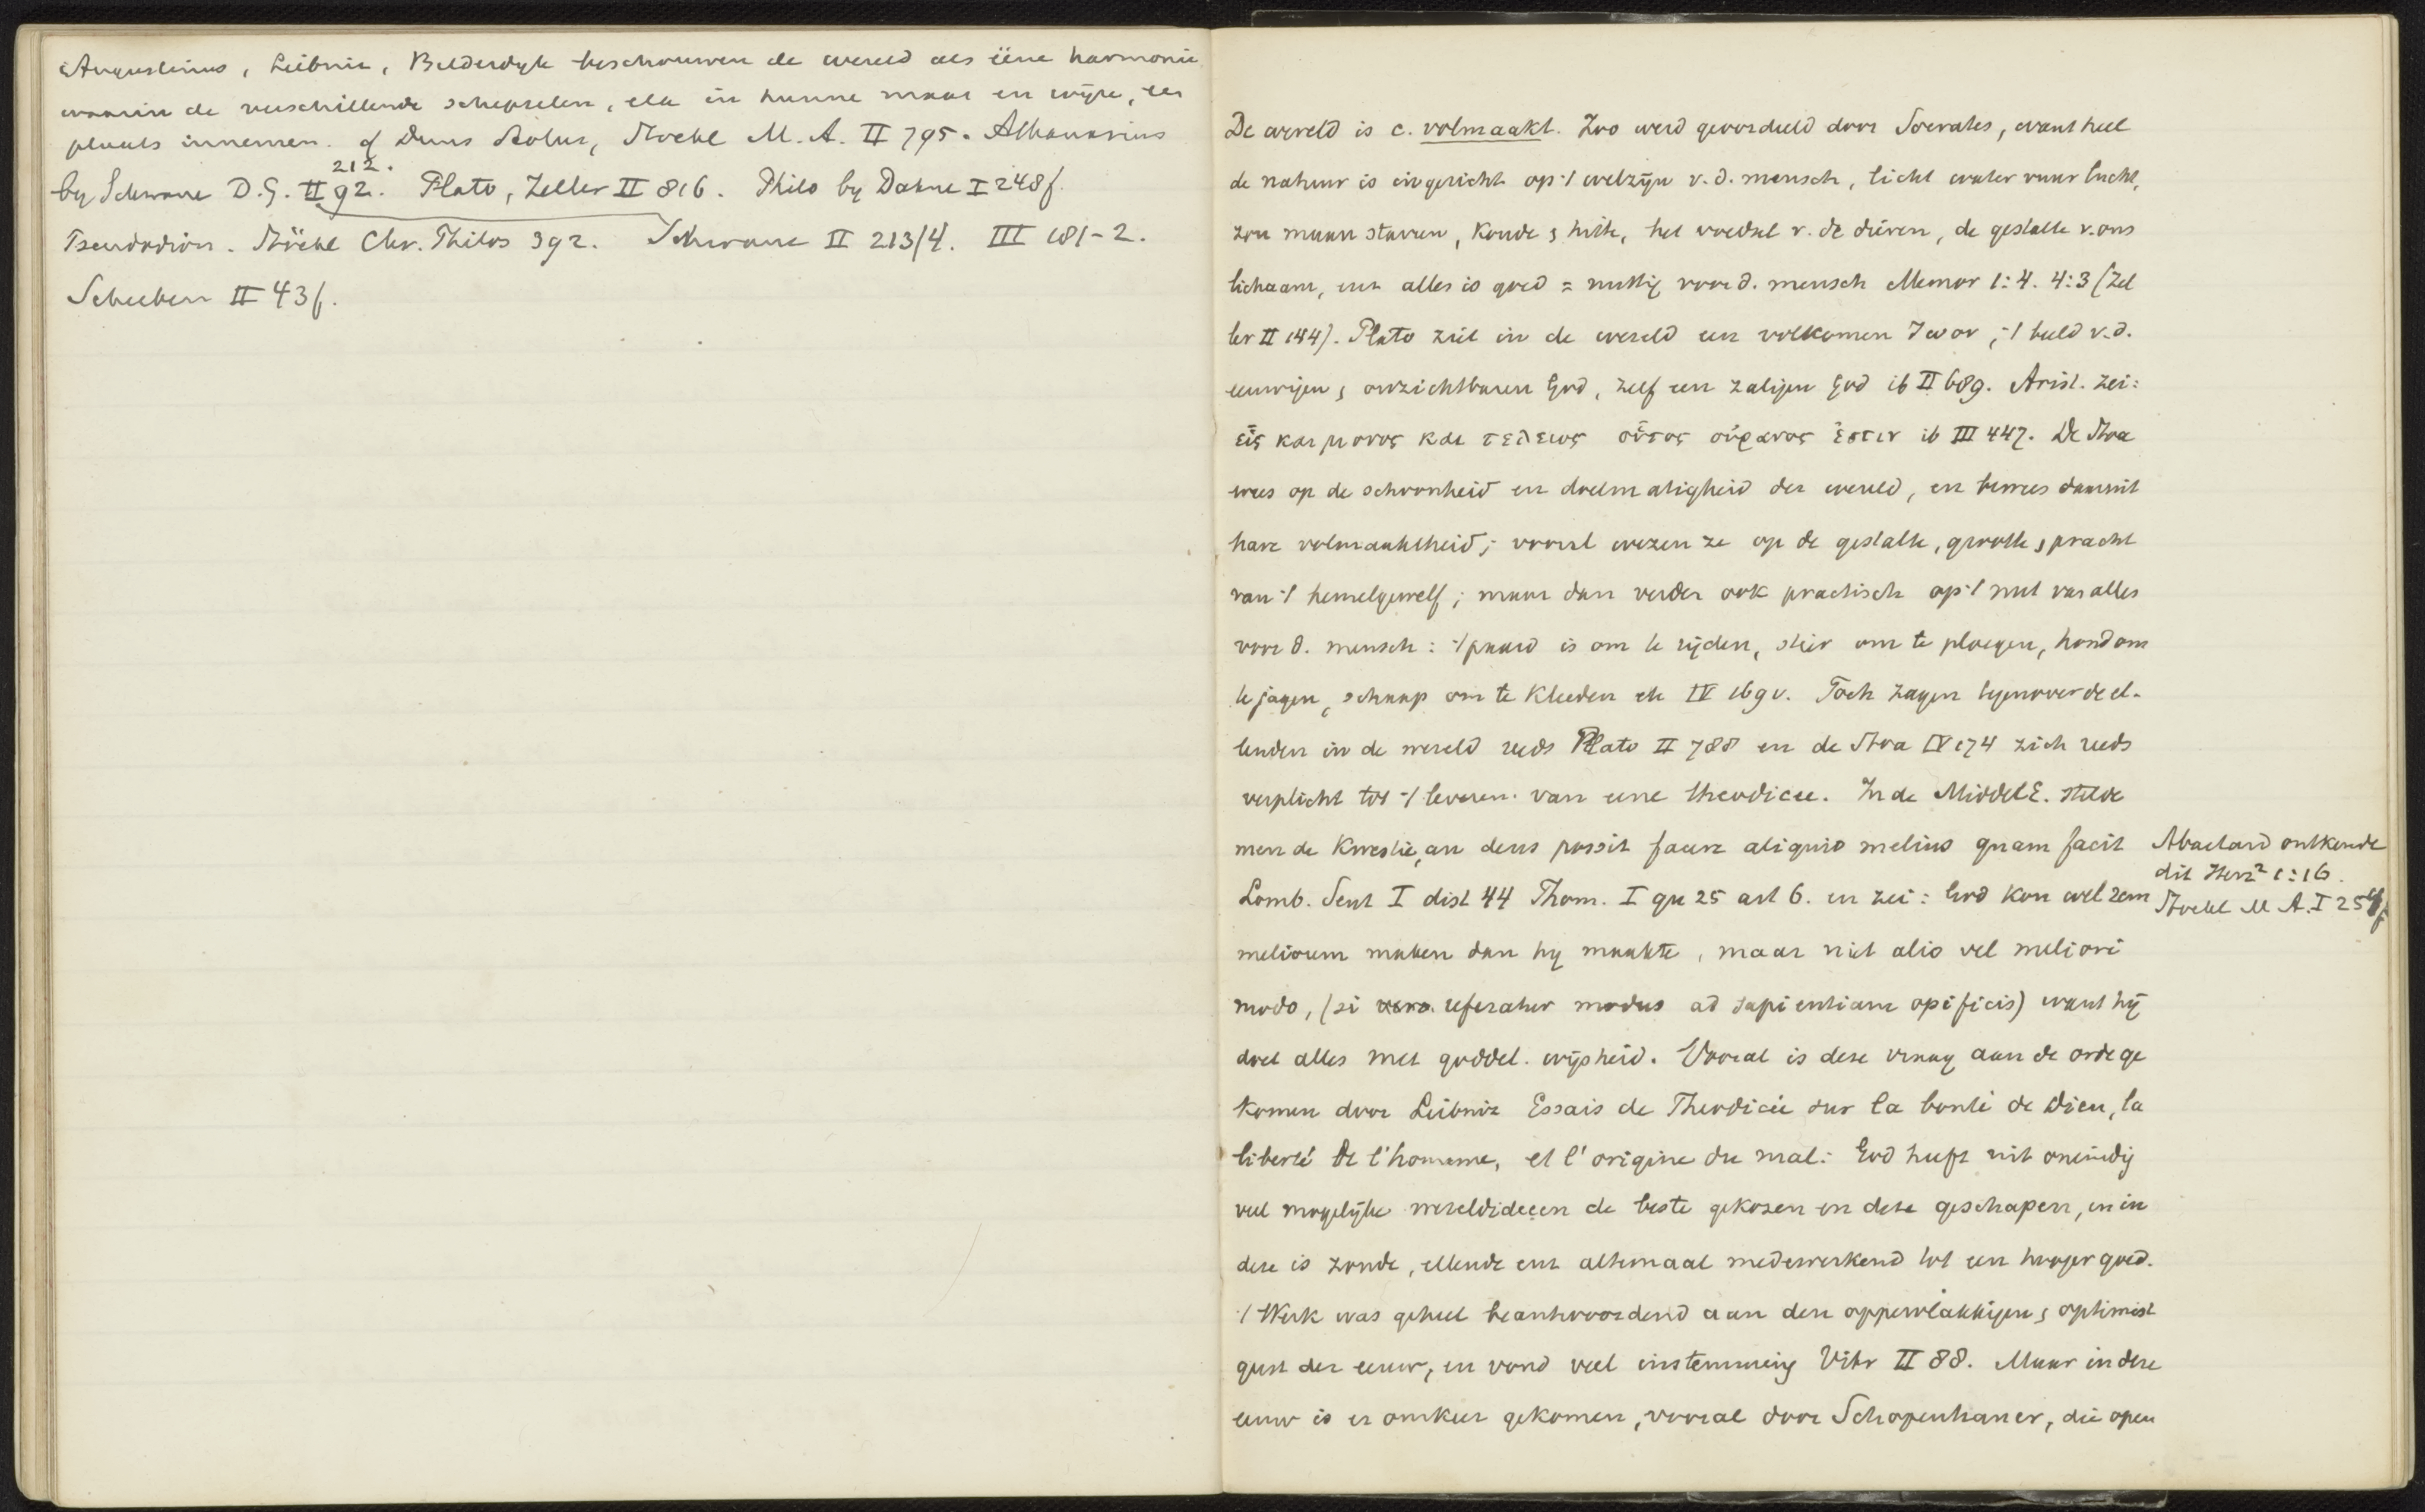 Augustinus, Leibniz, Bilderdyk beschouwen de wereld als ééne harmonie
waarin de verschillende schepselen, elk in hunne maat en wijze, een
plaats innemen. cf Duns Scotus, Stoekl M. A. II 795. Athanasius
212.
by Schwane D.G. II 92. Plato, Zeller II 816. Philo by Dahne I 248f.
Pseudodion. Stöckl Chr. Philos 392. Schwane II 213/4. III 181-2.
Scheeben II 43f.
De wereld is c. volmaakt. Zoo werd geoordeeld door Socrates, want heel
de natuur is ingericht op 't welzijn v. d. mensch, licht water vuur lucht,
zon maan starren, koude & hitte, het voedsel v. de dieren, de gestalte v. ons
lichaam, enz alles is goed = nuttig voor d. mensch Memor 1:4. 4:3 (Zel
ler II 144). Plato ziet in de wereld een volkomen ζωον, 't beeld v.d.
eeuwigen & onzichtbaren God, zelf een zaligen God ib II 689. Arist. zei:
εἷς και μονος και τελειος οὗτος οὐρανος ἐστιν ib III 447. De Stoa
wees op de schoonheid en doelmatigheid der wereld, en bewees daaruit
hare volmaaktheid; vooral wezen ze op de gestalte, grootte & pracht
van 't hemelgewelf; maar dan verder ook practisch op 't nut van alles
voor d. mensch: 't paard is om te rijden, stier om te ploegen, hond om
te jagen, schaap om te kleeden etc IV 169 v. Toch zagen tegenover de el-
lenden in de wereld reeds Plato II 788 en de Stoa IV 174 zich reeds
verplicht tot 't leveren van eene theodicee. In de MiddelE. stelde
men de kwestie, an deus possit facere aliquid melius quam facit
Lomb. Sent I dist 44 Thom. I qu 25 art 6. en zei: God kon wel rem
meliorem maken dan hy maakte, maar niet alio vel meliori
modo, (si referatur modus ad sapientiam opificis) want hij
doet alles met goddel. wijsheid. Vooral is deze vraag aan de orde ge
komen door Leibniz Essais de Theodicée sur la bonté de Dieu, la
liberté de l'homme, et l'origine du mal: God heeft uit oneindig
veel mogelijke wereldideeen de beste gekozen en deze geschapen, en in
deze is zonde, ellende enz altemaal medewerkend tot een hooger goed.
't Werk was geheel beantwoordend aan den oppervlakkigen & optimist
geest der eeuw, en vond veel instemming Vilm II 88. Maar in deze
eeuw is er omkeer gekomen, vooral door Schopenhauer, die open
Abaelard ontkende
dit Herz² 1:16.
Stoekl M A. I 254f